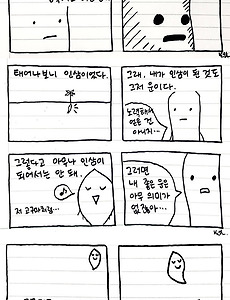 태어나보니 인삼이었다.
그래. 내가 인삼이 된 것도
그저 운이다.
노력해서
얻은 건
아니지…
그렇다고 아무나 인삼이
되어서는 안 돼.
저 고구마처럼…
그러면
내 좋은 운은
아무 의미가
없잖아…